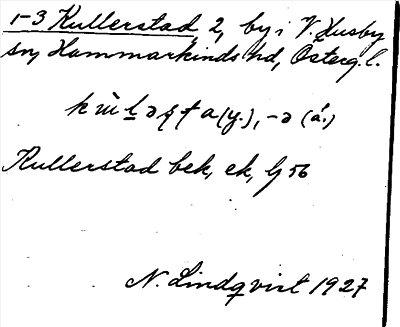 1-3 Kullerstad 2, by i V. Husby
sn, Hammarkinds hd, Österg. l.
(y.), -ə (ä.)
Kullerstad bek, ek, Gj 56
N. Lindqvist 1927